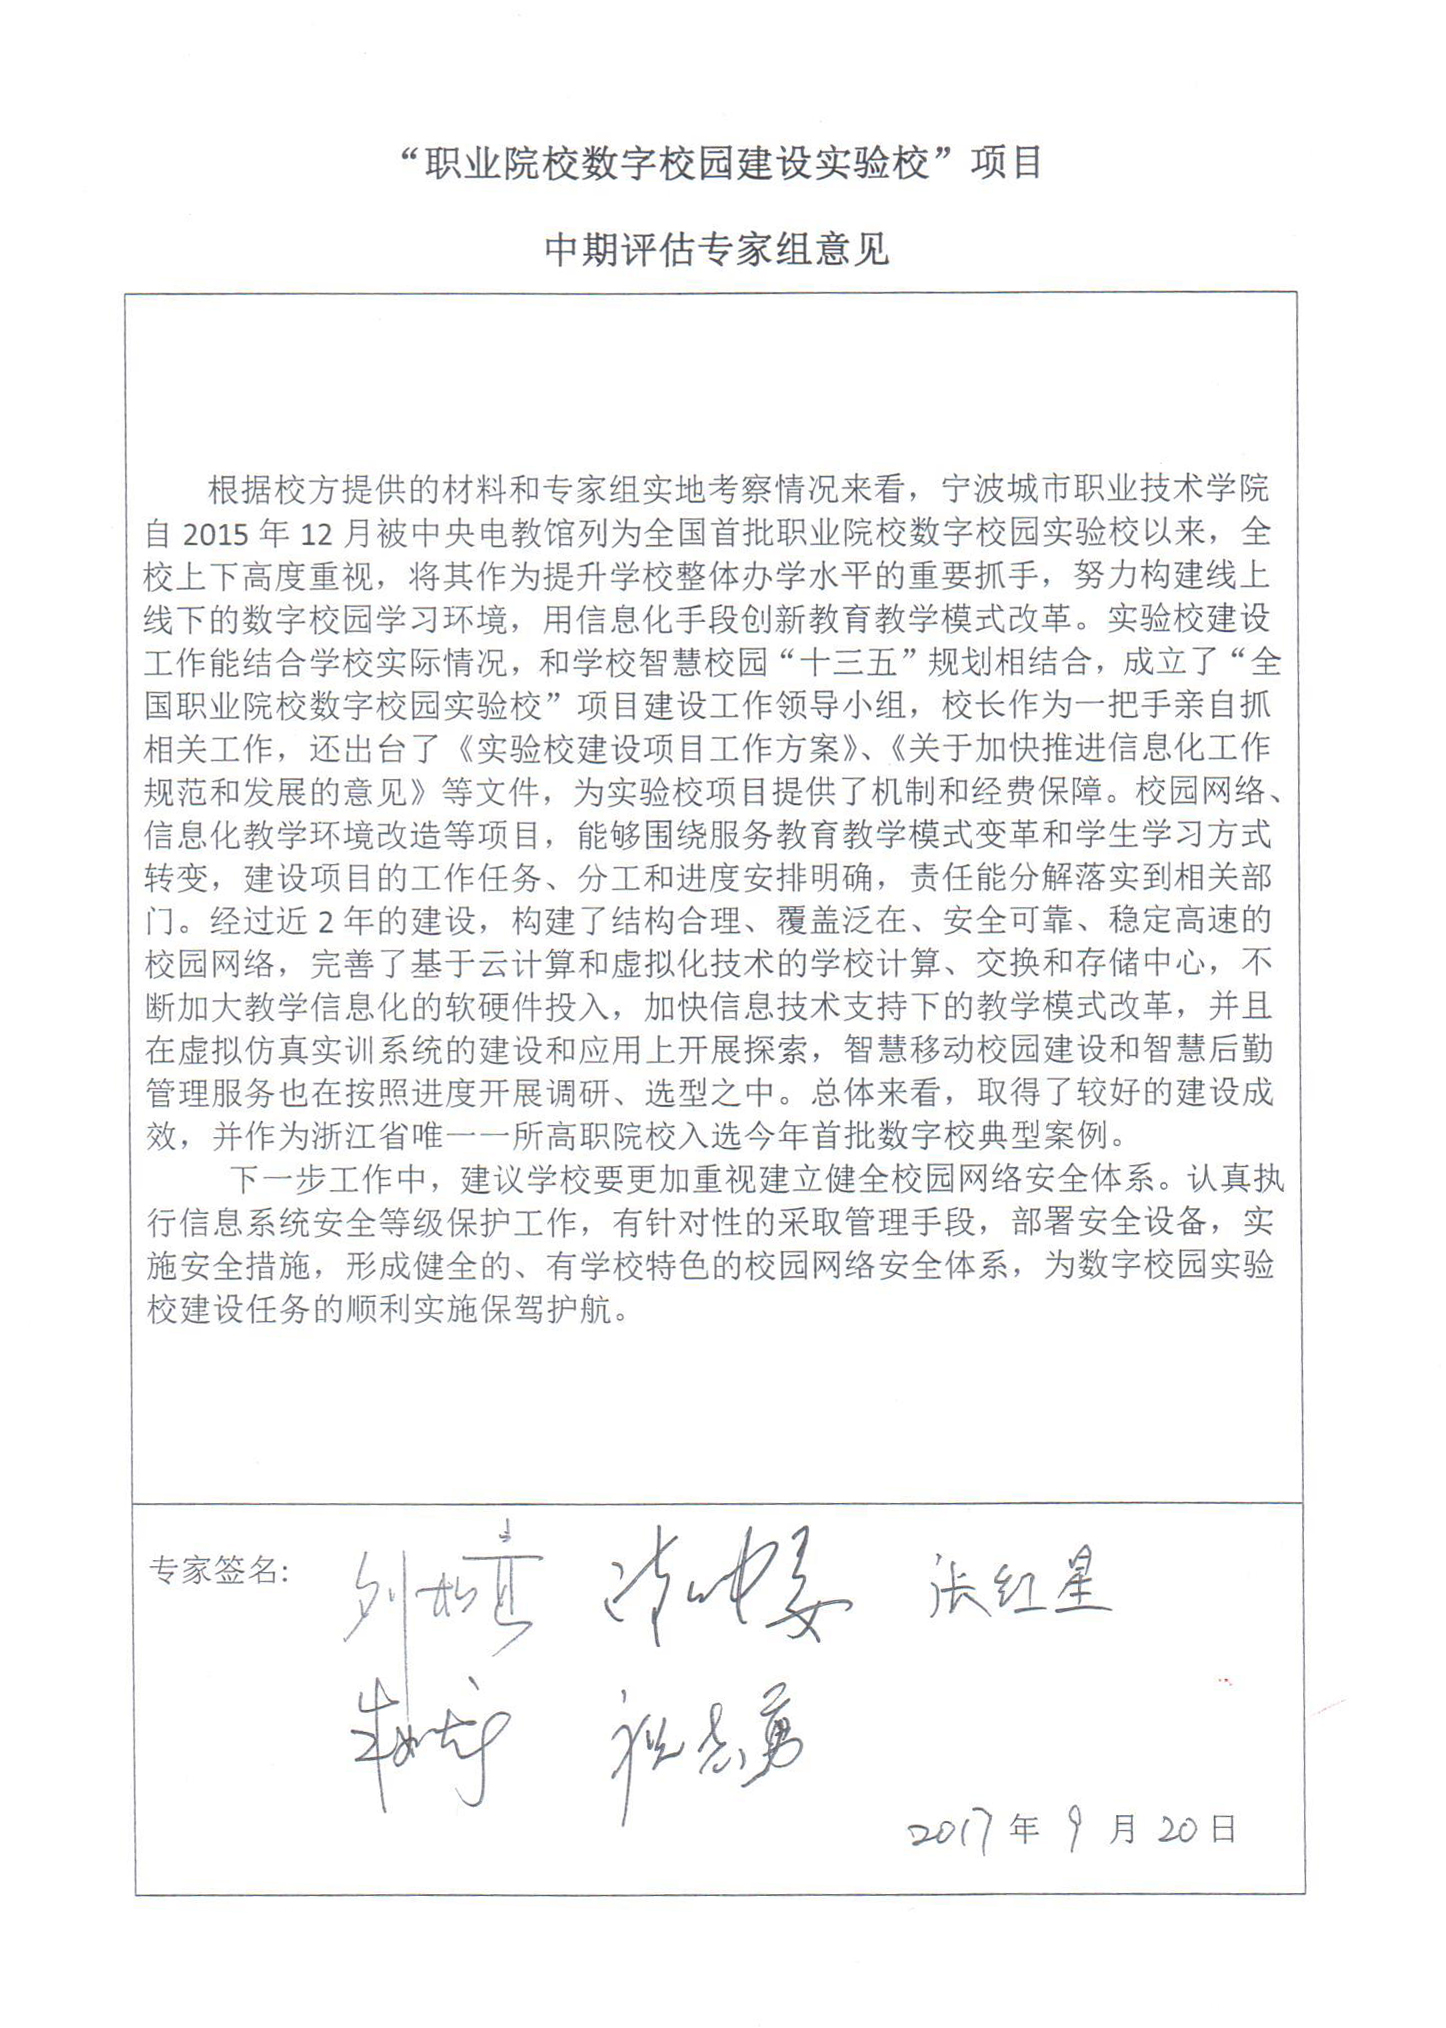 “职业院校数字校园建设实验校”项目
中期评估专家组意见
根据校方提供的材料和专家组实地考察情况来看，宁波城市职业技术学院
自 2015 年 12 月被中央电教馆列为全国首批职业院校数字校园实验校以来，全
校上下高度重视，将其作为提升学校整体办学水平的重要抓手，努力构建线上
线下的数字校园学习环境，用信息化手段创新教育教学模式改革。实验校建设
工作能结合学校实际情况，和学校智慧校园“十三五”规划相结合，成立了“全
国职业院校数字校园实验校”项目建设工作领导小组，校长作为一把手亲自抓
相关工作，还出台了《实验校建设项目工作方案》、《关于加快推进信息化工作
规范和发展的意见》等文件，为实验校项目提供了机制和经费保障。校园网络、
信息化教学环境改造等项目，能够围绕服务教育教学模式变革和学生学习方式
转变，建设项目的工作任务、分工和进度安排明确，责任能分解落实到相关部
门。经过近 2 年的建设，构建了结构合理、覆盖泛在、安全可靠、稳定高速的
校园网络，完善了基于云计算和虚拟化技术的学校计算、交换和存储中心，不
断加大教学信息化的软硬件投入，加快信息技术支持下的教学模式改革，并且
在虚拟仿真实训系统的建设和应用上开展探索，智慧移动校园建设和智慧后勤
管理服务也在按照进度开展调研、选型之中。总体来看，取得了较好的建设成
效，并作为浙江省唯一一所高职院校入选今年首批数字校典型案例。
下一步工作中，建议学校要更加重视建立健全校园网络安全体系。认真执
行信息系统安全等级保护工作，有针对性的采取管理手段，部署安全设备，实
施安全措施，形成健全的、有学校特色的校园网络安全体系，为数字校园实验
校建设任务的顺利实施保驾护航。
专家签名: 张红星
祝志勇
2017 年 9 月 20 日